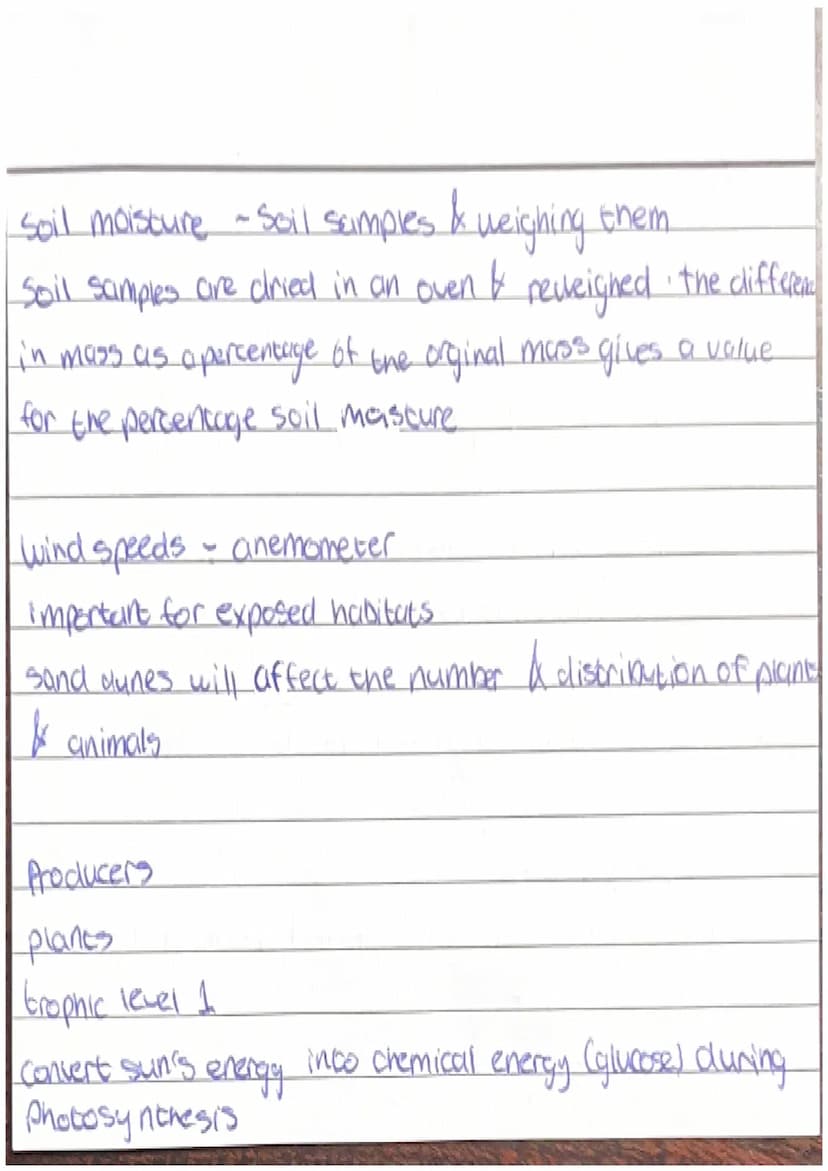 Soil moisture - Soil samples & weighing them
Soil samples are dried in an oven & reweighed . the difference
in mass as a percentage of the orginal mass gives a value
for the percentage soil moisture
Wind speeds - anemometer
important for exposed habitats
sand dunes will affect the number & distribution of plants
& animals
Producers
plants
trophic level 1
convert sun's energy into chemical energy (glucose) during
photosynthesis